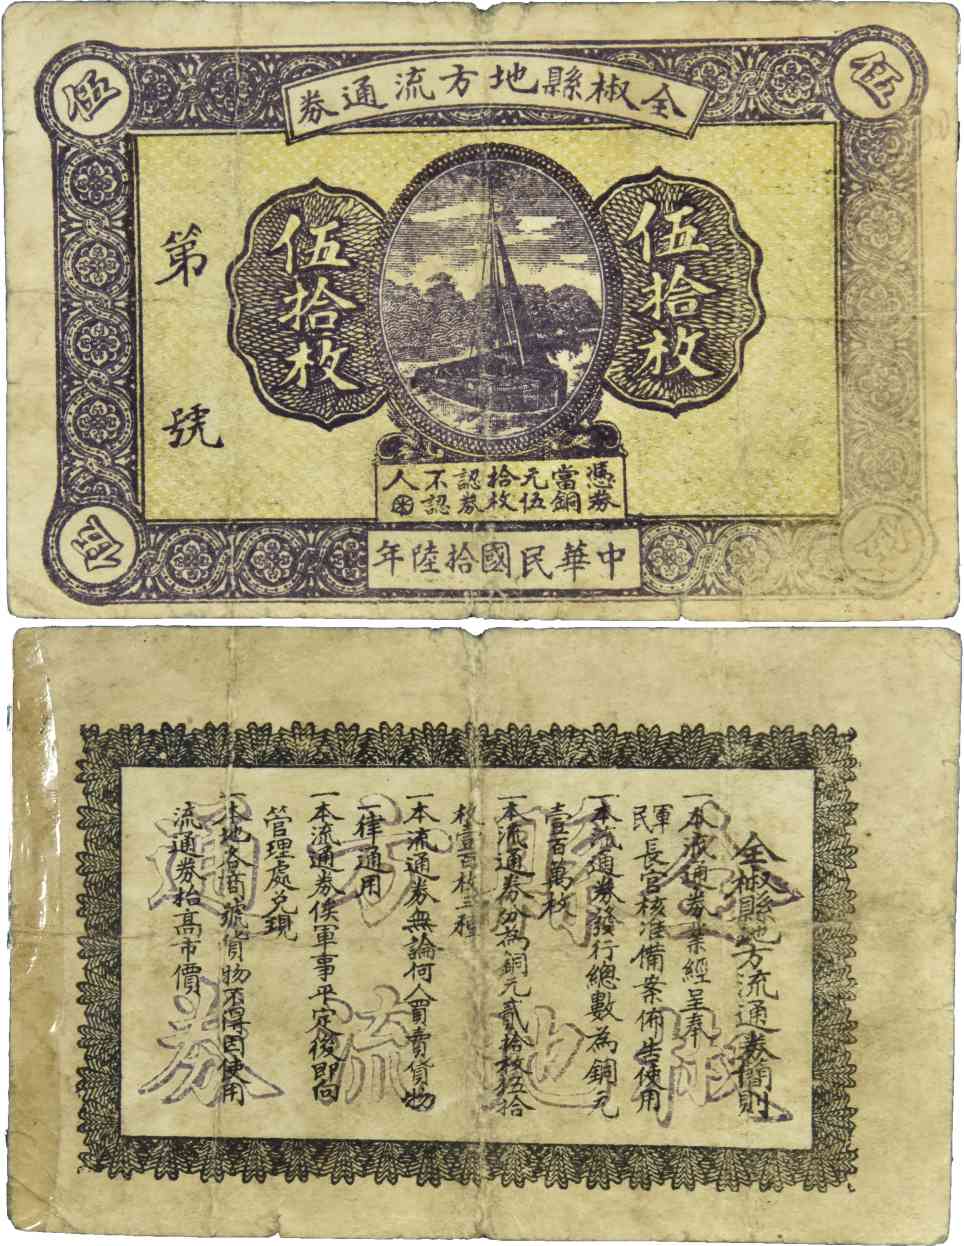 伍
伍
全椒縣地方流通券
第
號
伍拾枚
伍拾枚
憑券當銅元伍拾枚認券不認人
中華民國拾陸年
伍
伍
全椒縣地方流通券簡則
一本流通券業經呈奉
軍民長官核准備案佈告使用
一本流通券發行總數為銅元
壹百萬枚
一本流通券分為銅元貳拾枚伍拾
枚壹百枚三種
一本流通券無論何人買賣貨物
一律通用
一本流通券俟軍事平定後即向
管理處兌現
一本地各商號貨物不得因使用
流通券抬高市價
全椒縣地方流通券